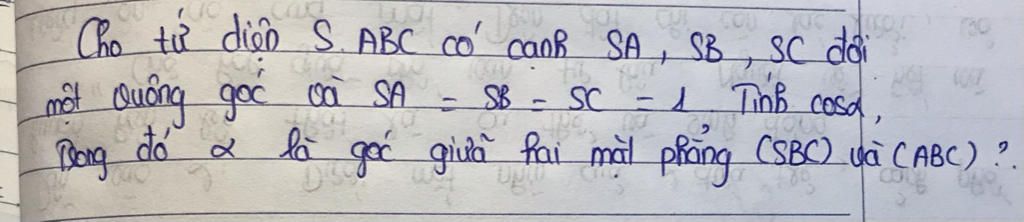 Cho tứ diện S.ABC có cạnh SA, SB, SC đôi
một vuông góc và SA = SB = SC = 1. Tính cosα,
trong đó α là góc giữa hai mặt phẳng (SBC) và (ABC)?.